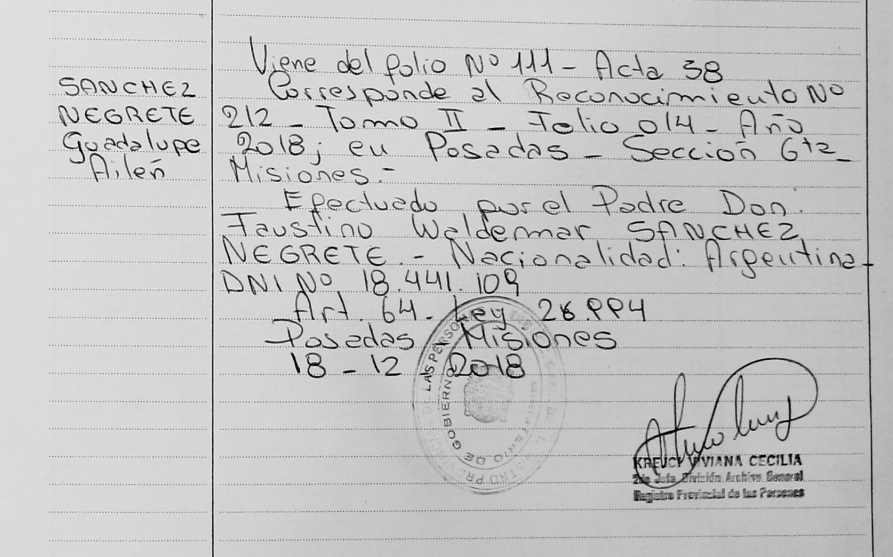 SANCHEZ
NEGRETE
Guadalupe
Ailén
Viene del folio Nº 111 - Acta 38
Corresponde al Reconocimiento Nº
212 - Tomo II - Folio 014 - Año
2018; en Posadas - Sección 6ta -
Misiones.-
Efectuado por el Padre Don:
Faustino Waldemar SANCHEZ
NEGRETE. - Nacionalidad: Argentina -
DNI Nº 18.441.109
Art. 64. Ley. 26.994
Posadas Misiones
18 - 12 2018
LAS PERSONAS
MINISTERIO DE GOBIERNO
KREUCH VIVIANA CECILIA
2da Jefa División Archivo General
Registro Provincial de las Personas